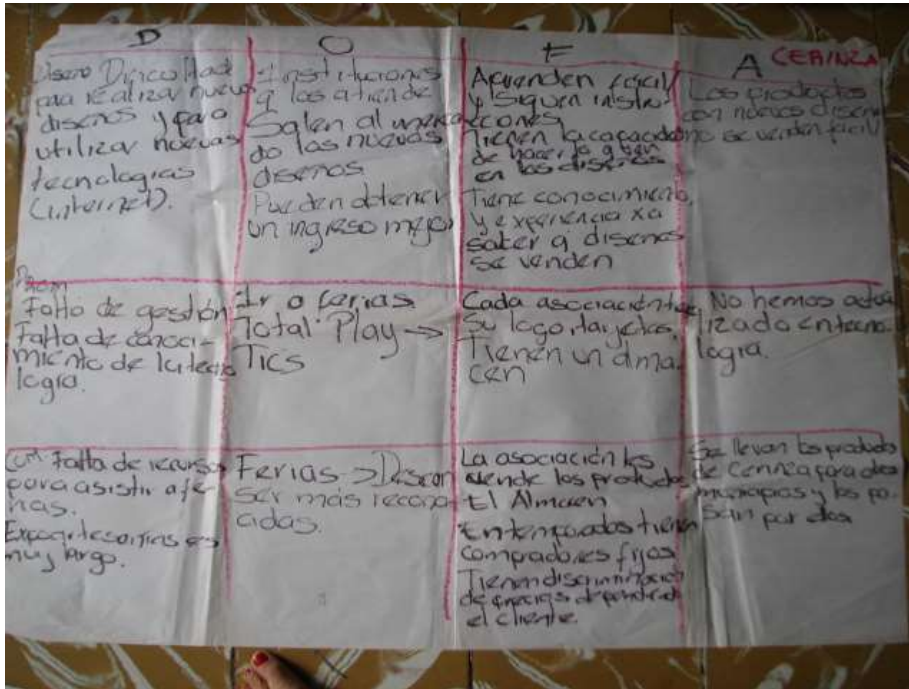 D
O
F
A
CERINZA
Diseño Dificultad
para realizar nuevos
diseños y para
utilizar nuevas
tecnologias
(internet).
Instituciones
q los atiende
Salen al merca
do los nuevos
diseños
Pueden obtener
un ingreso mejor
Aprenden fácil
y siguen instru
cciones
Tienen la capacidad
de hacer lo q ven
en los diseños
Tiene conocimiento
y experiencia xa
saber q diseños
se venden
Los productos
con nuevos diseños
no se venden fácil
Prom
Falta de gestión
Falta de conoci-
miento de la tecno
logia.
Ir a ferias
Total Play →
Tics
Cada asociación tiene
su logo, tarjetas.
Tienen un alma
cen
No hemos actua
lizado en tecno
logia.
Com Falta de recursos
para asistir a fe
rias.
Expoartesanias es
muy largo.
Ferias → Desean
ser más recono
cidas.
La asociación les
vende los productos
El Almacen
En temporadas tienen
compradores fijos
Tienen discriminación
de precios dependiendo
el cliente.
Se llevan los productos
de Cerinza para otros
municipios y los pa
san por otros